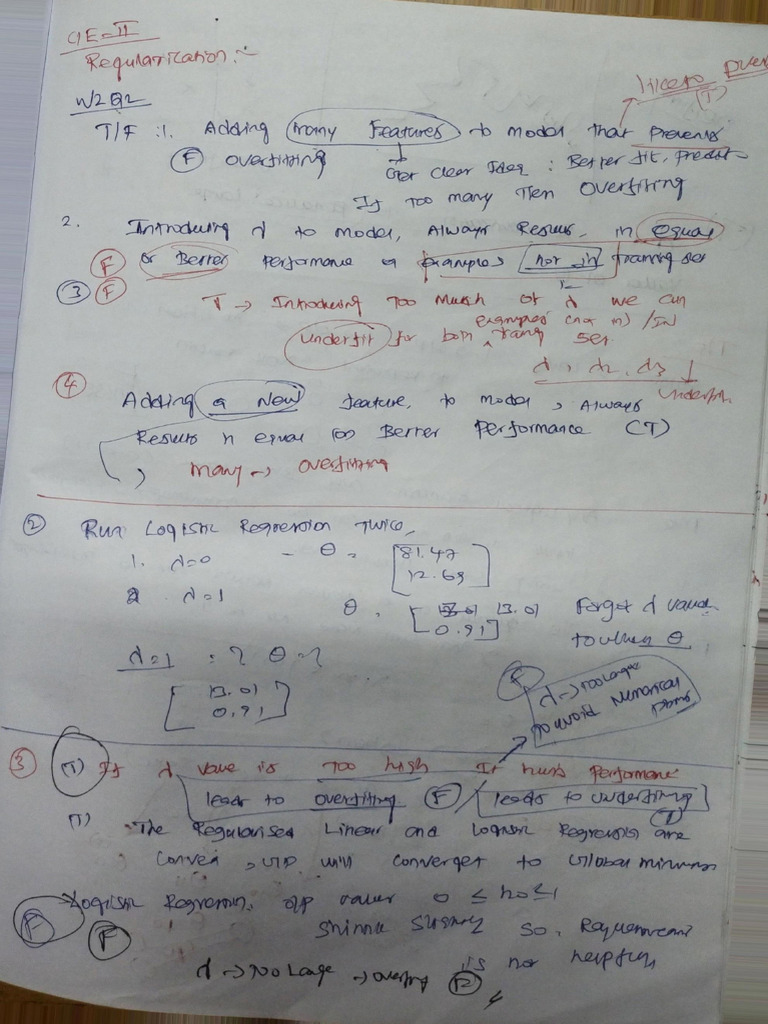 Regularization :-
W2 Q2
T/F :1. Adding many Features to model that Prevents
(F) overfitting
clear Idea : Better fit, predict
If too many then overfitting
2. Introducing λ to model, Always Results in equal
(F) or Better Performance of examples not in training set
(3) (F)
T → Introducing Too much of λ we can
underfit for both examples (not in) / IN
set
underfit
(4)
Adding a New feature to model, Always
Results in equal or Better Performance (T)
many → overfitting
(2) Run Logistic Regression Twice,
1. λ=0 - θ = [81.47
12.69]
2 λ=1
θ = [13.01
0.91] Forgot λ value
to when θ
λ=1 : ? θ = ?
[13.01
0.91]
(F) λ → too large
to avoid Numerical
(3) (T) If λ value is Too high It hurts Performance
leads to overfitting (F) / leads to underfitting (T)
(T) The Regularised Linear and Logistic Regression are
convex, will converges to Global minimum
Logistic Regression, o/p values 0 ≤ hθ ≤ 1
(F) (F) so,
is not helpful
λ → too large → (F)